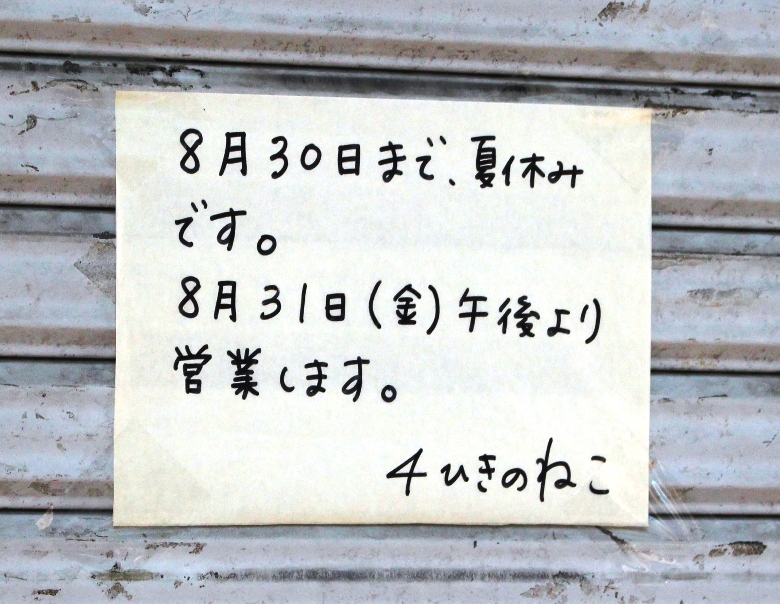 8月30日まで、夏休み
です。
8月31日(金)午後より
営業します。
4ひきのねこ